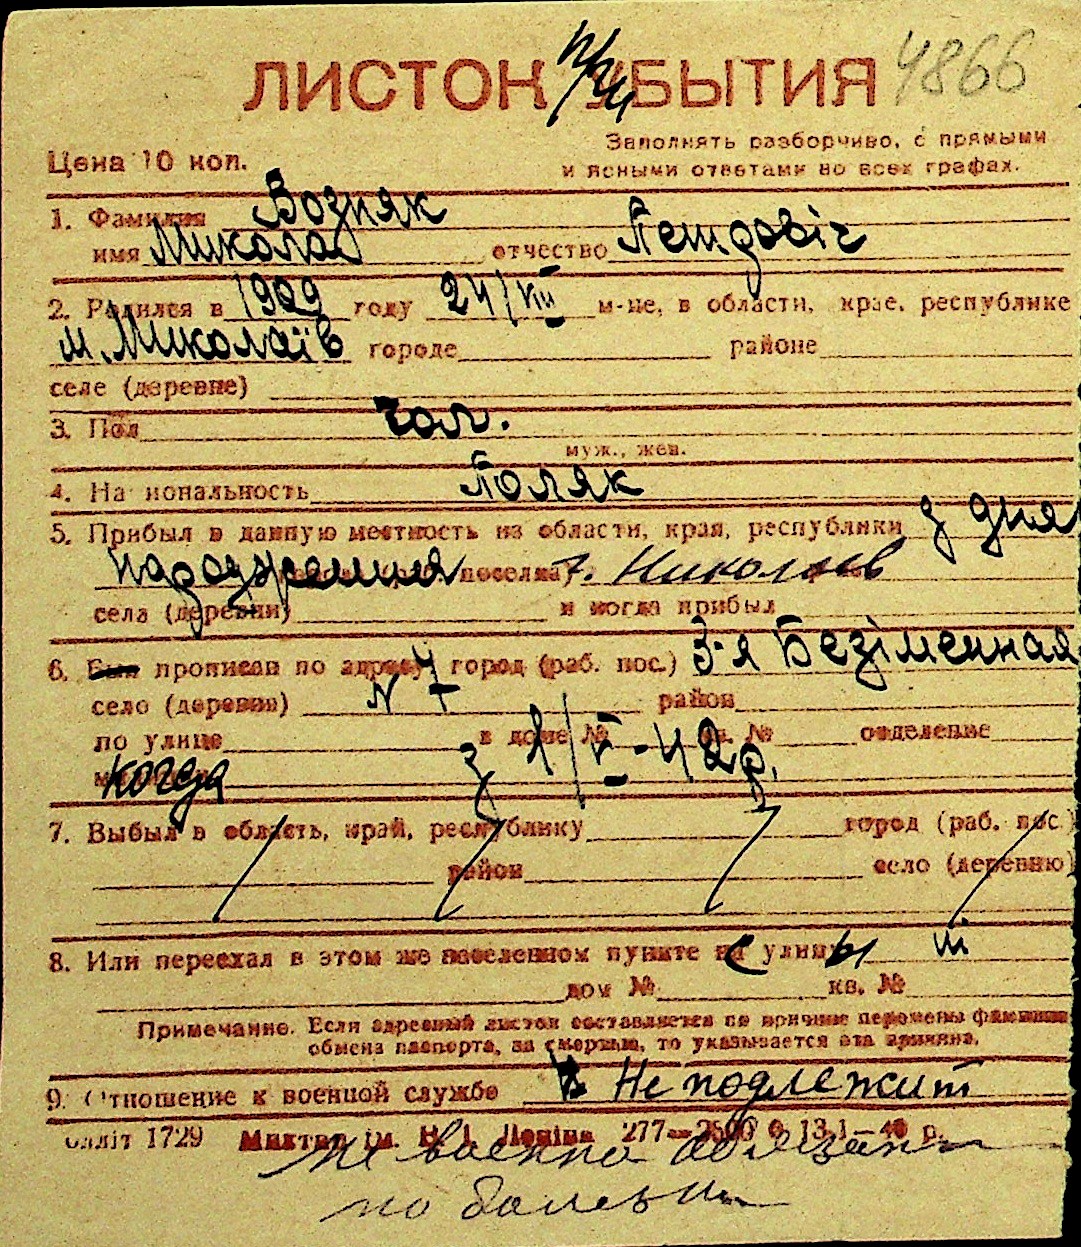 ЛИСТОК при УБЫТИЯ 4866
Заполнять разборчиво, с прямыми
Цена 10 коп.
и ясными ответами во всех графах.
1. Фамилия Возняк
имя Микола отчество Петровіч
2. Родился в 1909 году 24/VII м-це, в области, крае, республике
м. Миколаїв городе районе
селе (деревне)
3. Пол чол.
муж., жен.
4. На иональность Поляк
5. Прибыл в данную местность из области, края, республики з дня
народження поселка) г. Николаев
села (деревни) и когда прибыл
6. Был прописан по адресу город (раб. пос.) 3-я Безіменная
село (деревня) N 7 район
по улице в доме № кв. № отделение
когда з 1/VI-42р.
7. Выбыл в область, край, республику город (раб. пос.)
район село (деревню)
8. Или переехал в этом же населенном пункте с улицы
дом № кв. №
Примечание. Если адресный листок составляется по причине перемены фамилии
обмена паспорта, за смертью, то указывается эта причина.
9. Отношение к военной службе Не подлежит
блліт 1729 Миктип ім. В. І. Леніна 277—2500 б. 13.1—40 р.
не военно обязан
по болезни